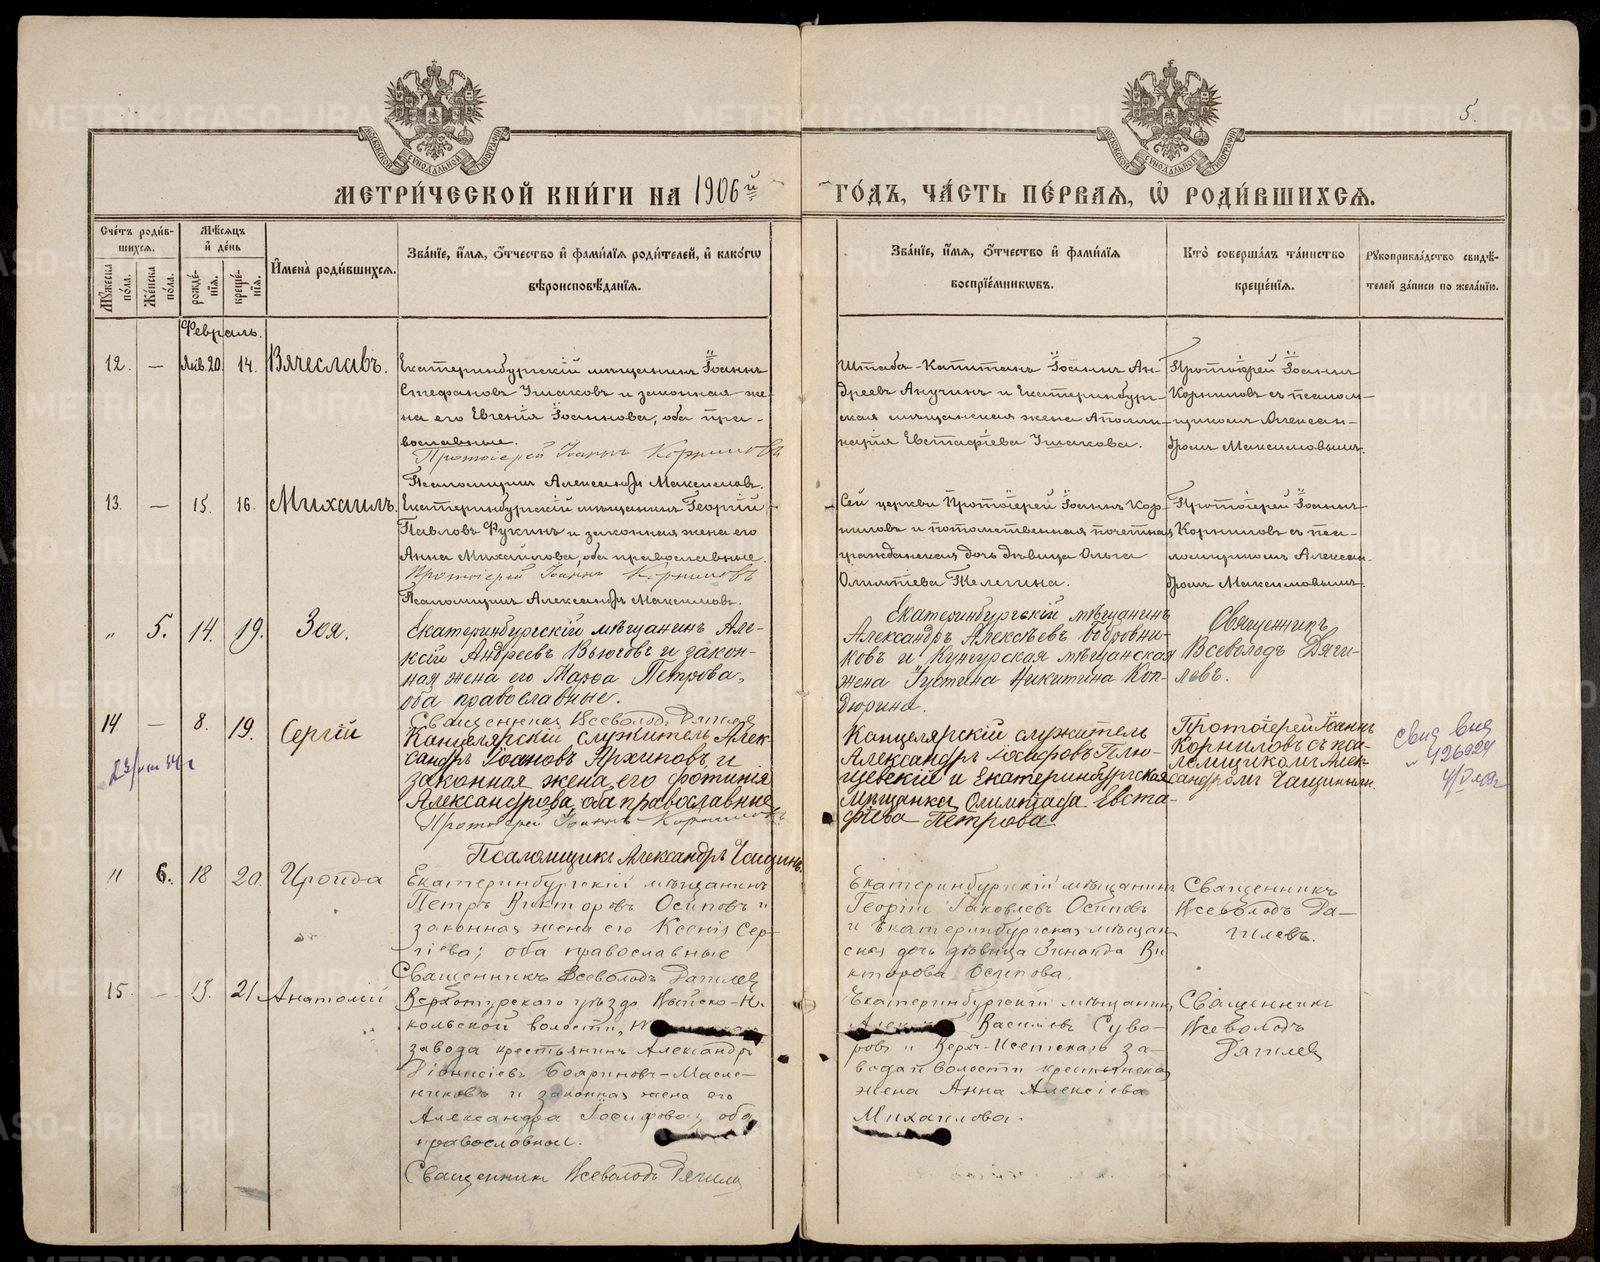 METRIKI.GASO-URAL.RU
5.
МОСКОВСКОЙ СѴНОДАЛЬНОЙ ТИПОГРАФІИ
МЕТРИ́ЧЕСКОЙ КНИ́ГИ НА 1906й
ГО́ДЪ, ЧА́СТЬ ПЕ́РВАЯ, Ѡ РОДИ́ВШИХСЯ.
Сче́тъ роди́вшихся.
Мꙋ́жеска по́ла.
Же́нска по́ла.
Мѣ́сяцъ и де́нь
рожде́нїя.
креще́нїя.
Имена̀ роди́вшихся.
Зва́нїе, и́мя, о́тчество и фами́лїя роди́телей, и како́гѡ вѣроисповѣ́данїя.
Зва́нїе, и́мя, о́тчество и фами́лїя воспрїе́мникѡвъ.
Кто̀ соверша́лъ та́инство креще́нїя.
Рꙋкоприкла́дство свидѣ́телей за́писи по жела́нїю.
Февраль.
12. — Янв. 20. 14. Вячеславъ.
Екатеринбургскій мѣщанинъ Іоаннъ
Стефановъ Ушаковъ и законная же-
на его Евгенія Іоаннова, оба пра-
вославные.
Протоіерей Іоаннъ Корниловъ
Псаломщикъ Александръ Максимовъ.
Штабсъ-Капитанъ Іоаннъ Ан-
дреевъ Анучинъ и Екатеринбург-
ская мѣщанская жена Аполли-
нарія Евстафіева Ушакова.
Протоіерей Іоаннъ
Корниловъ съ псалом-
щикомъ Алексан-
дромъ Максимовымъ.
13. — 15. 16. Михаилъ.
Екатеринбургскій мѣщанинъ Георгій
Павловъ Фукинъ и законная жена его
Анна Михайлова, оба православные.
Протоіерей Іоаннъ Корниловъ
Псаломщикъ Александръ Максимовъ.
Сей церкви Протоіерей Іоаннъ Кор-
ниловъ и потомственная почетная
гражданская дочь дѣвица Ольга
Олимпіева Телегина.
Протоіерей Іоаннъ
Корниловъ съ пса-
ломщикомъ Алексан-
дромъ Максимовымъ.
" 5. 14. 19. Зоя.
Екатеринбургскій мѣщанинъ Але-
ксій Андреевъ Вьюговъ и закон-
ная жена его Марѳа Петрова,
оба православные.
Священникъ Всеволодъ Дягилев
Екатеринбургскій мѣщанинъ
Александръ Алексѣевъ Бобровни-
ковъ и Кунгурская мѣщанская
жена Іустина Никитина Коп-
дюрина.
Священникъ
Всеволодъ Дяги-
левъ.
14 — 8. 19. Сергій
Канцелярскій служитель Алек-
сандръ Іоанновъ Архиповъ и
законная жена его Фотинія
Александрова, оба православные
Протоіерей Іоаннъ Корнилов
Псаломщикъ Александръ Чащинъ.
Канцелярскій служитель
Александръ Іосифовъ Плю-
щевскій и Екатеринбургская
мѣщанка Олимпіада Евста-
фіева Петрова
Протоіерей Іоаннъ
Корниловъ съ пса-
ломщикомъ Алек-
сандромъ Чащинымъ.
426929
" 6. 18 20. Ираида
Екатеринбургскій мѣщанинъ
Петръ Викторовъ Осиповъ и
законная жена его Ксенія Сер-
гіева; оба православные
Священникъ Всеволодъ Дягилев
Екатеринбургскій мѣщанинъ
Георгій Іаковлевъ Осиповъ
и Екатеринбургская мѣщан-
ская дочь дѣвица Зинаида Ви-
кторова Осипова.
Священникъ
Всеволодъ Дя-
гилевъ.
15. — 13. 21 Анатолій
Верхотурскаго уѣзда Выйско-Ни-
кольской волости,
завода крестьянинъ Александръ
Діонисіевъ Бояриновъ-Масле-
никовъ и законная жена его
Александра Іосифова; оба
православные.
Священникъ Всеволодъ Дягилев
Екатеринбургскій мѣщанинъ
Василіевъ Суво-
ровъ и Верхъ-Исетскаго за-
вода и волости крестьянская
жена Анна Алексіева
Михаилова.
Священникъ
Всеволодъ
Дягилев